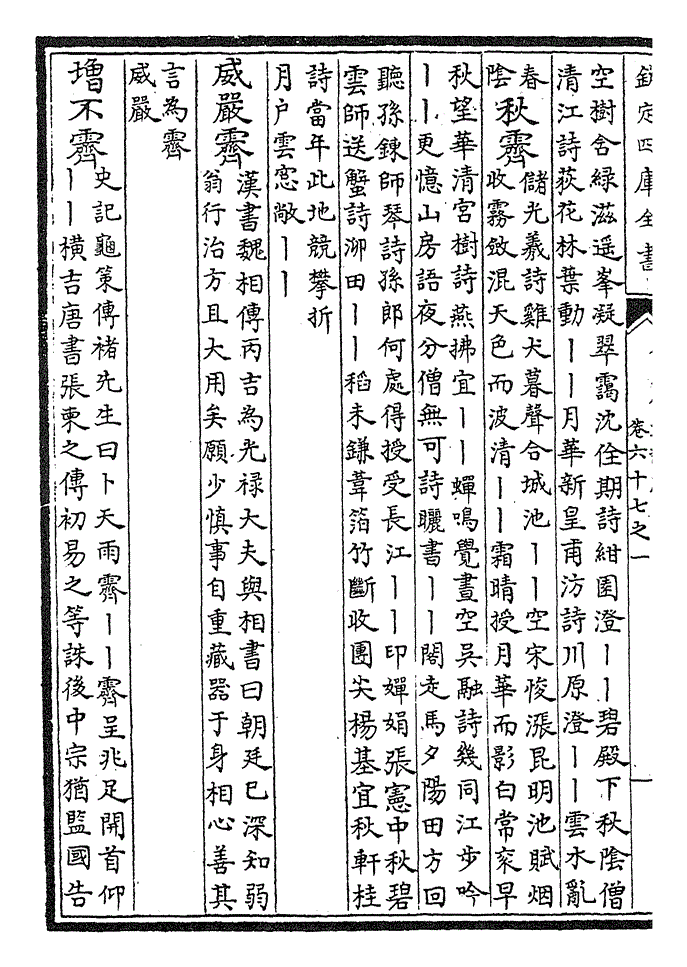 欽定四庫全書
卷六十七之一
空樹含綠滋遥峯凝翠靄沈佺期詩紺園澄丨丨碧殿下秋陰僧
清江詩荻花林葉動丨丨月華新皇甫汸詩川原澄丨丨雲水亂
春
陰
秋霽
儲光羲詩雞犬暮聲合城池丨丨空宋悛漲昆明池賦烟
收霧斂混天色而波清丨丨霜晴授月華而影白常衮早
秋望華清宫樹詩燕拂宜丨丨蟬鳴覺晝空吳融詩幾同江步吟
丨丨更憶山房語夜分僧無可詩曬書丨丨閣走馬夕陽田方回
聽孫鍊師琴詩孫郎何處得授受長江丨丨印嬋娟張憲中秋碧
雲師送蟹詩泖田丨丨稻未鎌葦箔竹斷收團尖楊基宜秋軒桂
詩當年此地競攀折
月户雲窓敞丨丨
威嚴霽
漢書魏相傳丙吉為光禄大夫與相書曰朝廷已深知弱
翁行治方且大用矣願少慎事自重藏器于身相心善其
言為霽
威嚴
増不霽
史記龜策傳褚先生曰卜天雨霽丨丨霽呈兆足開首仰
丨丨橫吉唐書張柬之傳初易之等誅後中宗猶監國告